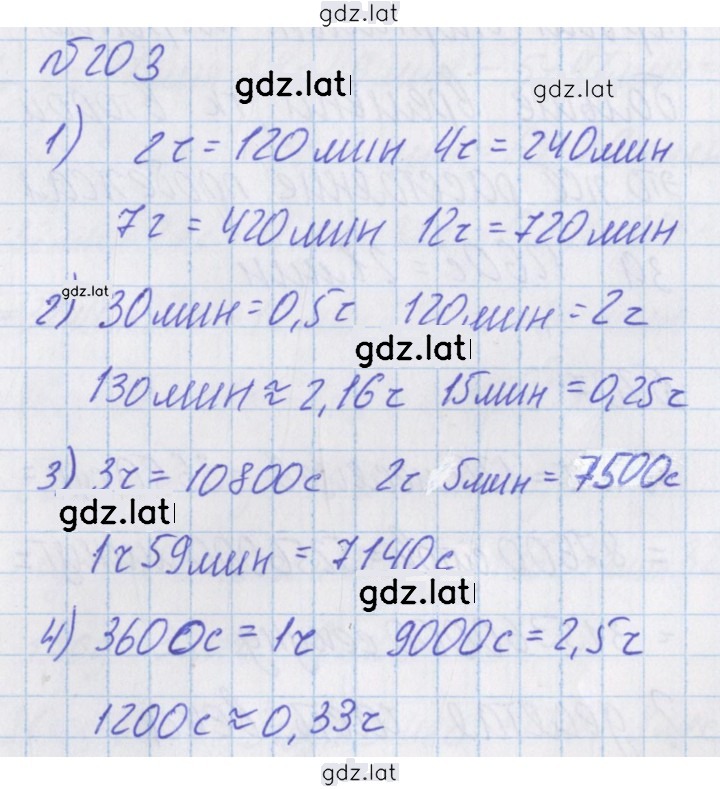 gdz.lat
№203
gdz.lat gdz.lat
1) 2ч = 120мин 4ч = 240мин
7ч = 420мин 12ч = 720мин
gdz.lat
2) 30мин = 0,5ч 120мин = 2ч
gdz.lat
130мин ≈ 2,16ч 15мин = 0,25ч
3) 3ч = 10800с 2ч 5мин = 7500с
gdz.lat
1ч 59мин = 7140с
gdz.lat
4) 3600с = 1ч 9000с = 2,5ч
1200с ≈ 0,33ч
gdz.lat